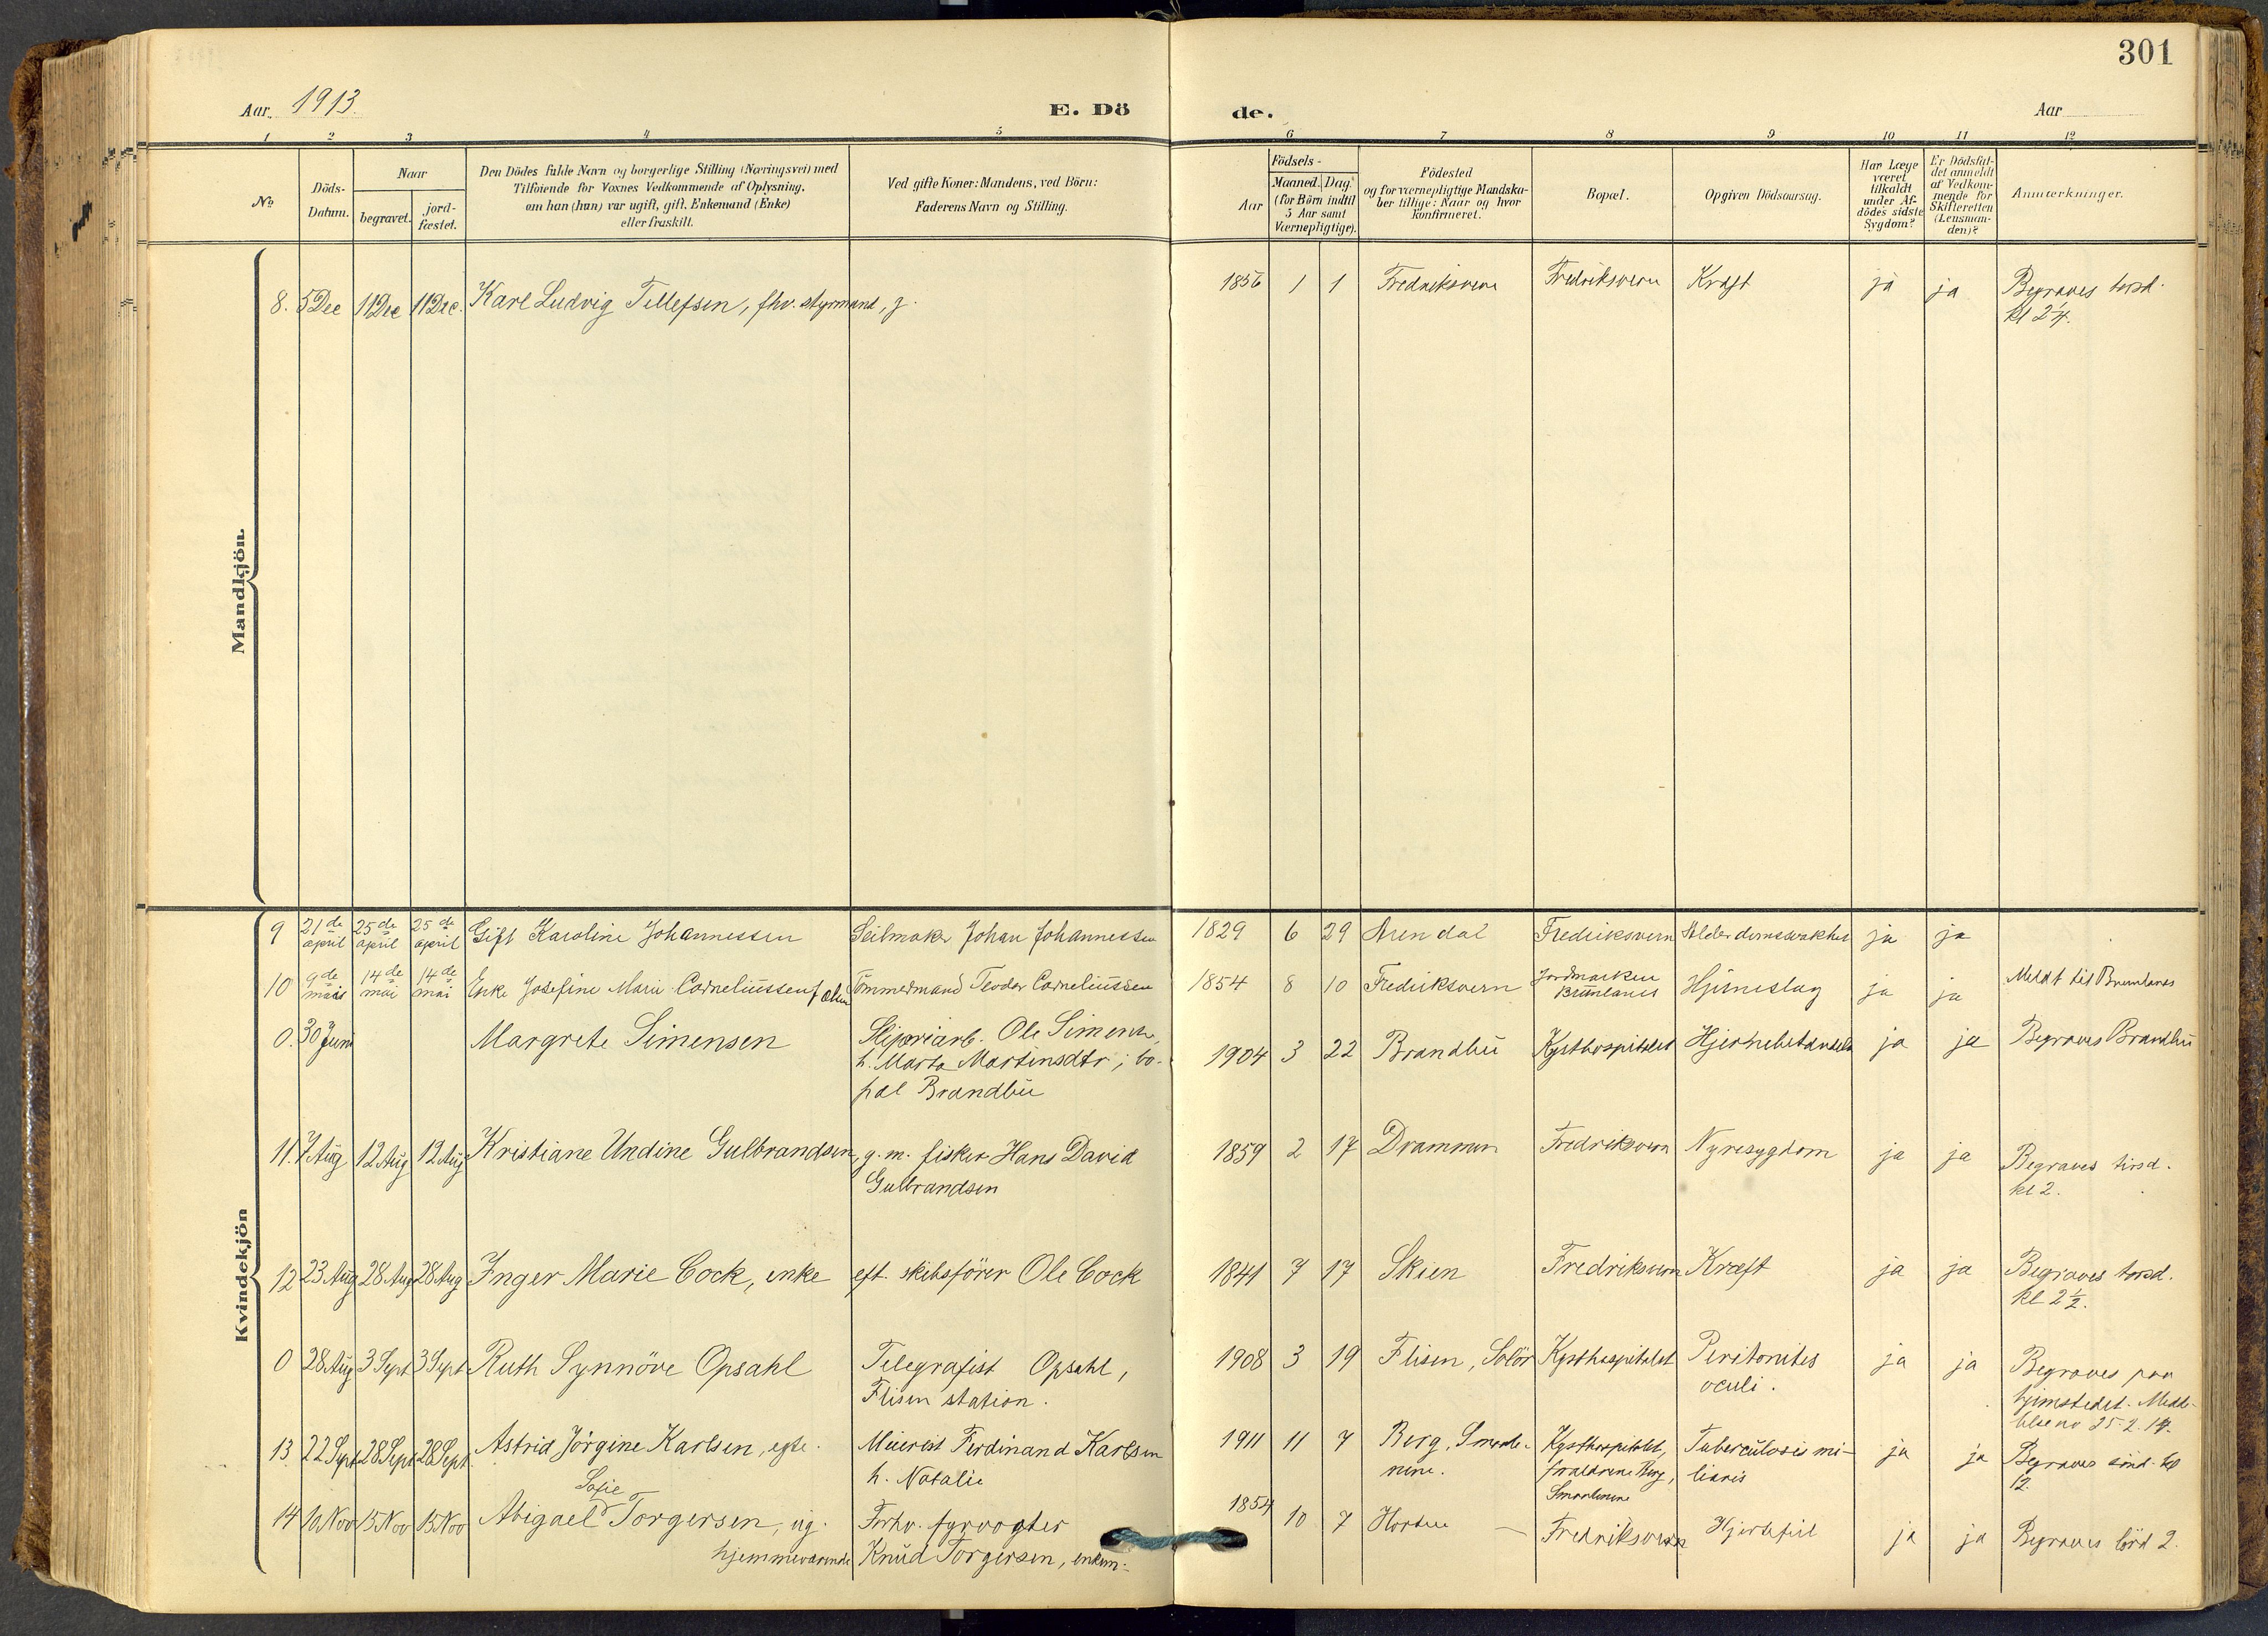 301
Aar 1913.
E. Dö
de.
Aar
1 2 3 4 5 6 7 8 9 10 11 12
No
Döds-
Datum.
Naar
begravet.
jord-
fæstet.
Den Dödes fulde Navn og borgerlige Stilling (Næringsvei) med
Tilföiende for Voxnes Vedkommende af Oplysning,
om han (hun) var ugift, gift, Enkemand (Enke)
eller fraskilt.
Ved gifte Koner: Mandens, ved Börn:
Faderens Navn og Stilling.
Födsels-
Aar
Maaned. Dag.
(for Börn indtil
5 Aar samt
Værnepligtige).
Födested
og for værnepligtige Mandska-
ber tillige: Naar og hvor
konfirmeret.
Bopæl.
Opgiven Dödsaarsag.
Har Læge
været
tilkaldt
under Af-
dödes sidste
Sygdom?
Er Dödsfal-
det anmeldt
af Vedkom-
mende for
Skifteretten
(Lensman-
den)?
Anmærkninger.
Mandkjön.
8. 5 Dec 11 Dec 11 Dec. Karl Ludvig Tellefsen, fhv. styrmand, g. 1856 1 1 Fredriksvern Fredriksvern Kræft ja ja Begraves torsd.
kl 2 1/4.
Kvindekjön
9 21de april 25de april 25de april Gift Karoline Johannessen Seilmaker Johan Johannessen 1829 6 29 Arendal Fredriksvern Alderdomssvakhet ja ja
10 9de mai 14de mai 14de mai Enke Josefine Marie Corneliussen Tømmermand Teodor Corneliussen 1854 8 10 Fredriksvern
Brunlanes Hjerneslag ja ja Meldt til Brunlanes
0. 30 Juni Margrete Simensen Sliperiarb. Ole Simensen,
h. Marta Martinsdtr; bo-
pæl Brandbu
1904 3 22 Brandbu Kysthospitalet Hjernebetændelse ja ja Begraves Brandbu
11. 7 Aug 12 Aug 12 Aug Kristiane Undine Gulbrandsen, g. m. fisker Hans David
Gulbrandsen
1859 2 17 Drammen Fredriksvern Nyresygdom ja ja Begraves tirsd.
kl 2.
12 23 Aug 28 Aug 28 Aug Inger Marie Cock, enke eft. skibsförer Ole Cock 1841 7 17 Skien Fredriksvern Kræft ja ja Begraves torsd.
kl 2 1/2.
0 28 Aug 3 Sept 3 Sept Ruth Synnöve Opsahl Telegrafist Opsahl,
Flisen station.
1908 3 19 Flisen, Solör Kysthospitalet Peritonites
oculi.
ja ja Begraves paa
hjemstedet. Medd-
else av 25-2-14.
13 22 Sept 28 Sept 28 Sept Astrid Jörgine Karlsen, egte. Meierist Ferdinand Karlsen
h. Natalie
1911 11 7 Berg, Smaale-
nene.
Kysthospitalet,
forældrene Berg,
Smaalenene
Tuberculosis mi-
liaris
ja ja Begraves sönd. kl
12.
14 10 Nov 15 Nov 15 Nov Abigael Sofie Torgersen, ug.
hjemmeværende
Forhv. fyrvogter
Knud Torgersen, enkem.
1854 10 7 Horten Fredriksvern Hjertefeil ja ja Begraves lörd 2.